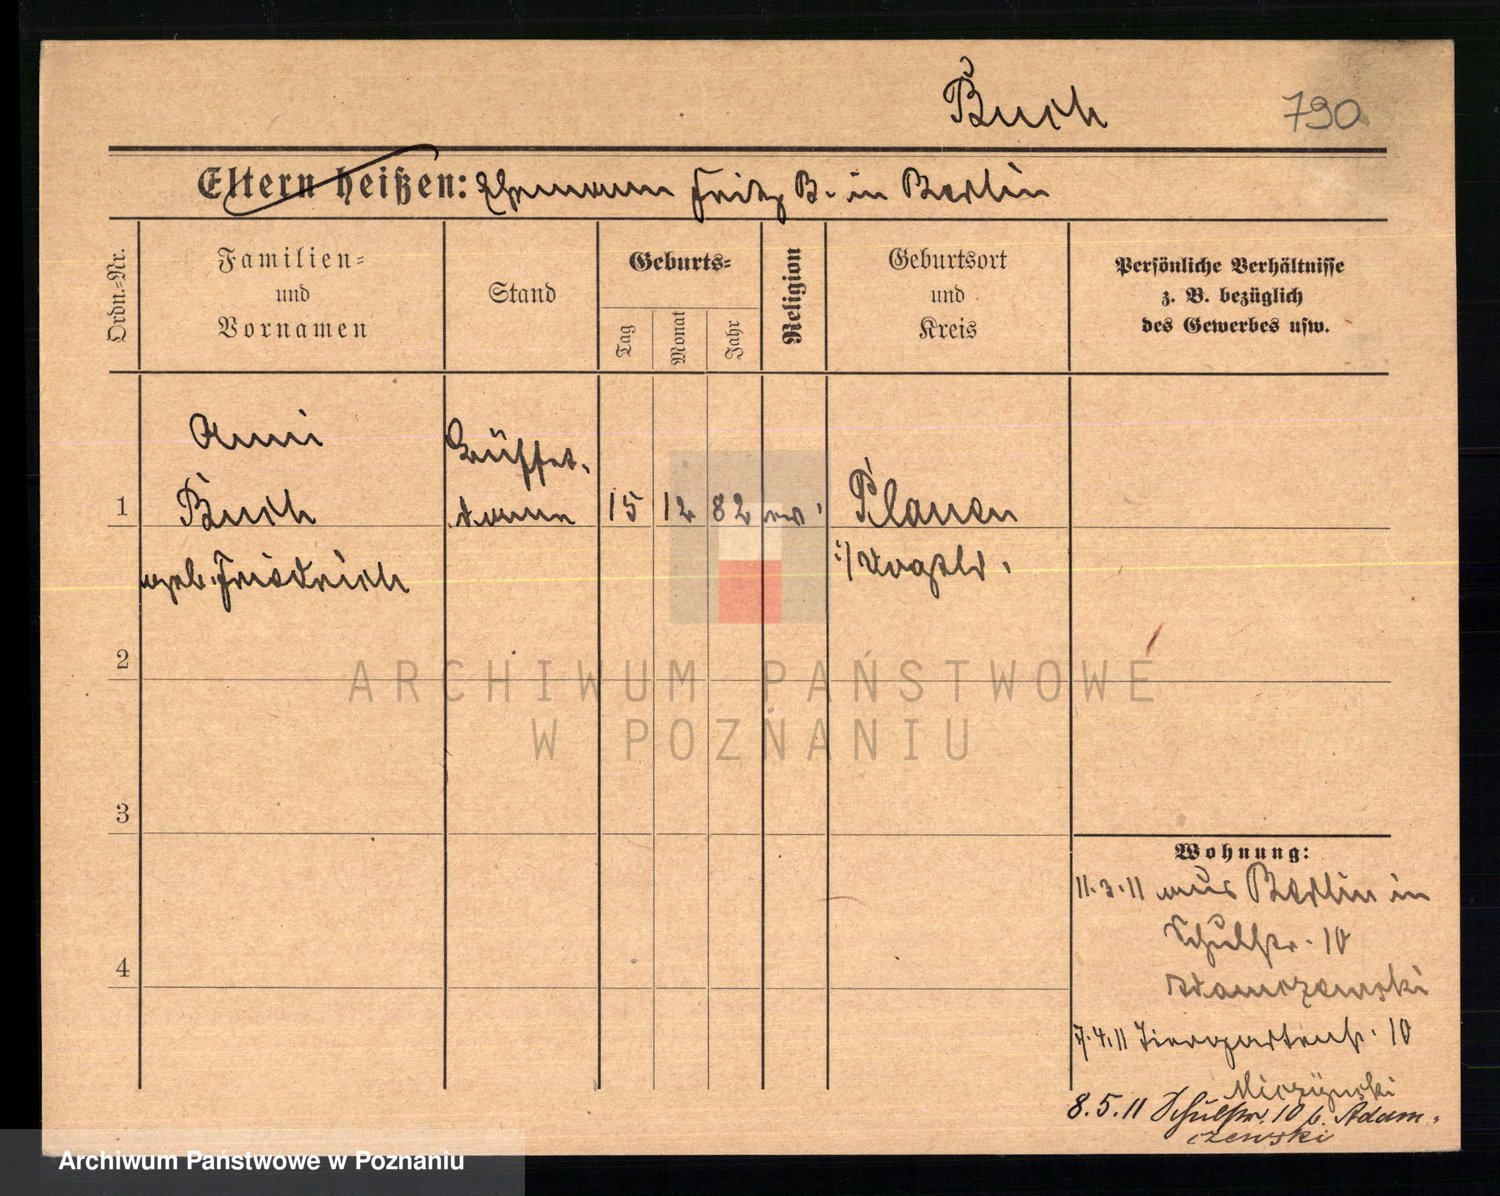 Buch
790
Eltern heißen: Ehemann Fritz B. in Berlin
Ordn.-Nr.
Familien-
und
Vornamen
Stand
Geburts-
Tag
Monat
Jahr
Religion
Geburtsort
und
Kreis
Persönliche Verhältnisse
z. B. bezüglich
des Gewerbes usw.
1
Anni
Buch
geb. Friedrich
Büffet-
dame
15
12
82
ev.
Plauen
i/Vogtld.
2
3
4
ARCHIWUM PAŃSTWOWE
W POZNANIU
Wohnung:
11.3.11 aus Berlin in
Schulstr. 10
Adamczewski
7.4.11 Tiergartenstr. 10
8.5.11 Schulstr. 10 b. Adam-
czewski
Archiwum Państwowe w Poznaniu